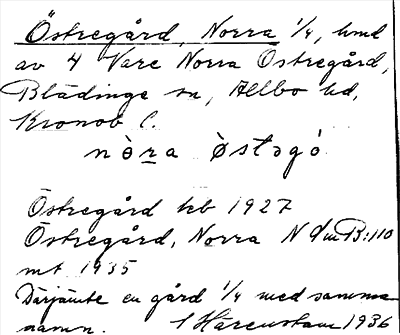 Östregård, Norra 1/4, hmd
av 4 Vare Norra Östregård,
Blädinge sn, Allbo hd,
Kronob l.
nò̱ra òstəgó
Östregård kb 1927
Östregård, Norra N dm B:110
mt 1935
Därjämte en gård 1/4 med samma
namn. 1936